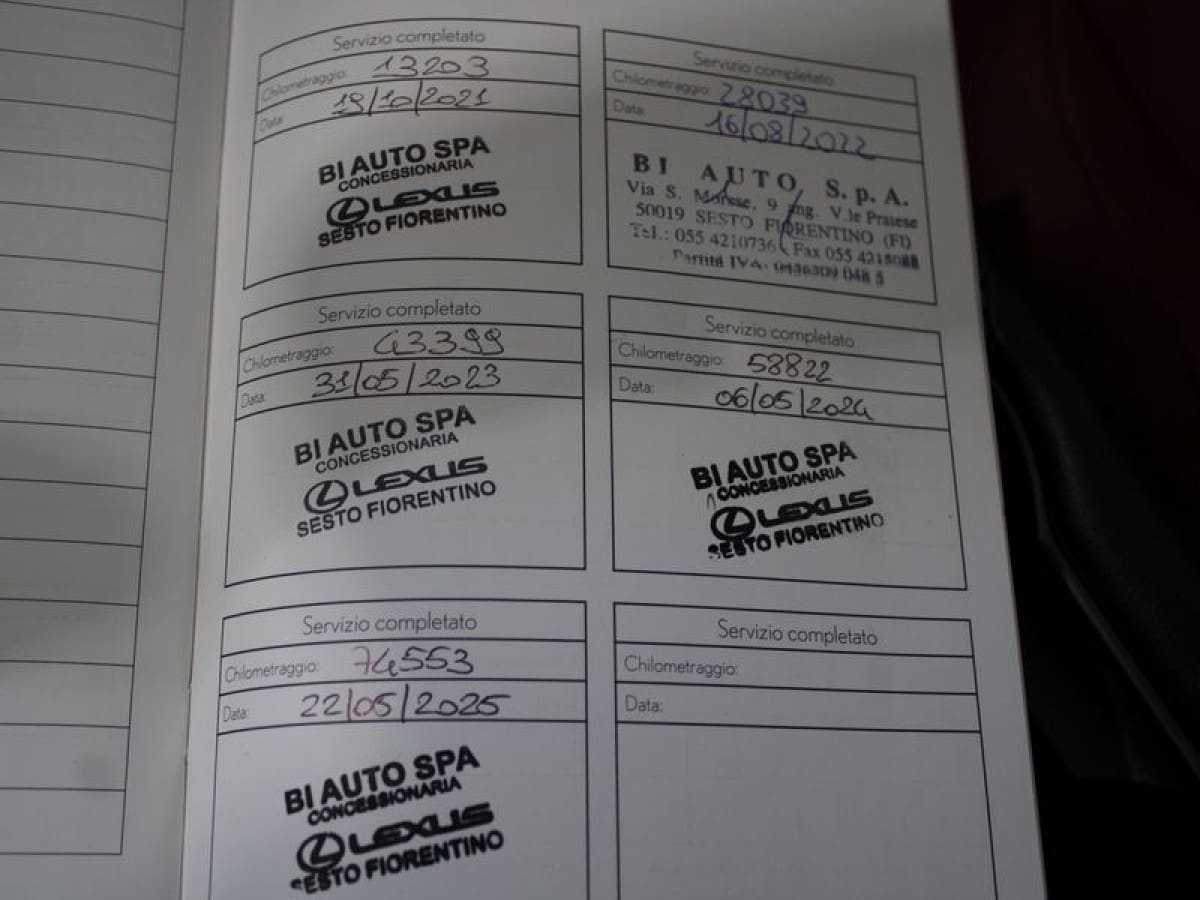 Servizio completato
Chilometraggio: 13203
Data: 19/10/2021
BI AUTO SPA
CONCESSIONARIA
LEXUS
SESTO FIORENTINO
Servizio completato
Chilometraggio: 28039
Data: 16/08/2022
BI AUTO S.p.A.
Via S. Morese, 9 ang. V.le Pratese
50019 SESTO FIORENTINO (FI)
Tel.: 055 4210736 Fax 055 4215088
Partita IVA:
Servizio completato
Chilometraggio: 43399
Data: 31/05/2023
BI AUTO SPA
CONCESSIONARIA
LEXUS
SESTO FIORENTINO
Servizio completato
Chilometraggio: 58822
Data: 06/05/2024
BI AUTO SPA
CONCESSIONARIA
LEXUS
SESTO FIORENTINO
Servizio completato
Chilometraggio: 74553
Data: 22/05/2025
BI AUTO SPA
CONCESSIONARIA
LEXUS
SESTO FIORENTINO
Servizio completato
Chilometraggio:
Data: